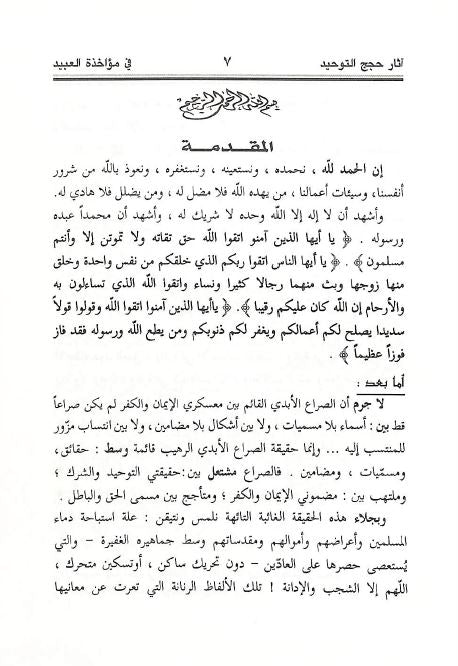 آثار حجج التوحيد ٧ في مؤاخذة العبيد
بسم الله الرحمن الرحيم
المقدمة
إن الحمد لله ، نحمده ، ونستعينه ، ونستغفره ، ونعوذ بالله من شرور
أنفسنا، وسيئات أعمالنا ، من يهده الله فلا مضل له ، ومن يضلل فلا هادي له .
وأشهد أن لا إله إلا الله وحده لا شريك له ، وأشهد أن محمداً عبده
ورسوله . ﴿ يا أيها الذين آمنوا اتقوا الله حق تقاته ولا تموتن إلا وأنتم
مسلمون ﴾ . ﴿ يا أيها الناس اتقوا ربكم الذي خلقكم من نفس واحدة وخلق
منها زوجها وبث منهما رجالا كثيرا ونساء واتقوا الله الذي تساءلون به
والأرحام إن الله كان عليكم رقيبا ﴾ . ﴿ ياأيها الذين آمنوا اتقوا الله وقولوا قولاً
سديدا يصلح لكم أعمالكم ويغفر لكم ذنوبكم ومن يطع الله ورسوله فقد فاز
فوزاً عظيماً ﴾ .
أما بعد :
لا جرم أن الصراع الأبدي القائم بين معسكري الإيمان والكفر لم يكن صراعاً
قط بين : أسماء بلا مسميات ، ولا بين أشكال بلا مضامين ، ولا بين انتساب مزوّر
للمنتسب إليه ... وإنما حقيقة الصراع الأبدي الرهيب قائمة وسط : حقائق ،
ومسمّيات ، ومضامين . فالصراع مشتعل بين : حقيقتي التوحيد والشرك ؛
وملتهب بين : مضموني الإيمان والكفر ؛ ومتأجج بين مسمى الحق والباطل .
وبجلاء هذه الحقيقة الغائبة التائهة نلمس ونتيقن : علة استباحة دماء
المسلمين وأعراضهم وأموالهم ومقدساتهم وسط جماهيره الغفيرة – والتي
يُستعصى حصرها على العادّين – دون تحريك ساكن ، أوتسكين متحرك ،
اللهم إلا الشجب والإدانة ! تلك الألفاظ الرنانة التي تعرت عن معانيها